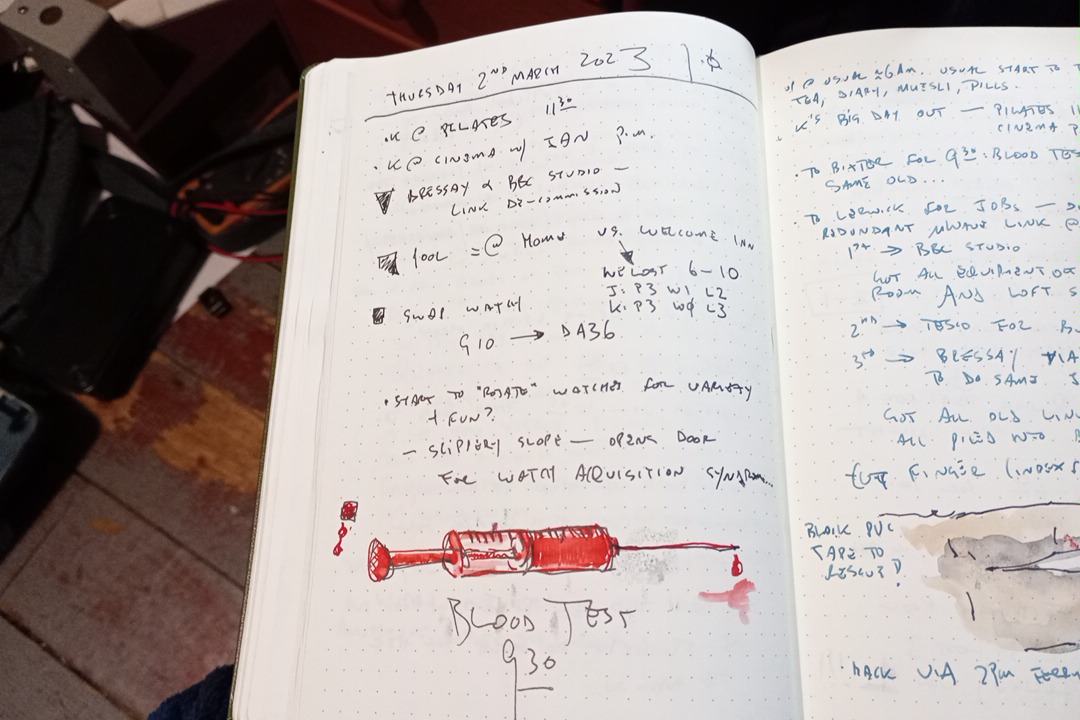 THURSDAY 2ND MARCH 2023
• K @ PILATES 11 30
• K @ CINEMA W/ IAN P.M.
BRESSAY & BBC STUDIO —
LINK DE-COMMISSION
POOL = @ HOME VS. WELCOME INN
WE LOST 6-10
J: P3 W1 L2
K: P3 W0 L3
SWAP WATCH
G10 → DA36
• START TO "ROTATE" WATCHES FOR VARIETY
+ FUN?
— SLIPPERY SLOPE — OPENS DOOR
FOR WATCH ACQUISITION SYNDROM...
BLOOD TEST
9 30
@ USUAL ≈6AM. USUAL START TO
TEA, DIARY, MUESLI, PILLS.
• K'S BIG DAY OUT — PILATES 11
CINEMA P
• TO BIXTER FOR 9 30: BLOOD TES
SAME OLD...
• TO LERWICK FOR JOBS —
REDUNDANT MWAVE LINK @
1ST → BBC STUDIO
GOT ALL EQUIPMENT
ROOM AND LOFT S
2ND → TESCO FOR
3RD → BRESSAY VIA
TO DO SAME
GOT ALL OLD LINK
ALL PILED INTO
CUT FINGER (INDEX
BLACK PVC
TAPE TO
RESCUE!
• BACK VIA 2PM FERRY